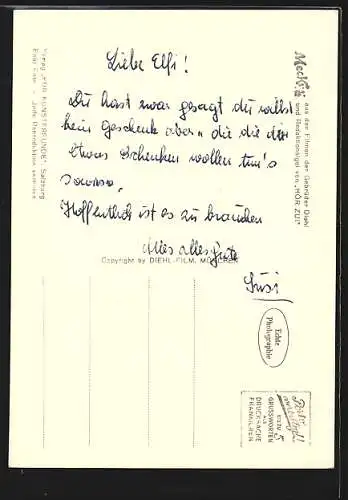 Liebe Elfi!
Du hast zwar gesagt du willst
kein Geschenk aber die die dir
etwas schenken wollen tun's
sowieso.
Hoffentlich ist es zu brauchen
Alles alles gute
Susi
Mecki aus den Filmen der Gebrüder Diehl
und Redaktionsigel von „HÖR ZU!"
Copyright by DIEHL-FILM, MÜNCHEN
Verlag „FÜR KUNSTFREUNDE", Salzburg
Jede Reproduktion verboten
Echte
Photographie
BIS ZU 5
GRUSSWORTEN
ALS
DRUCKSACHE
FRANKIEREN